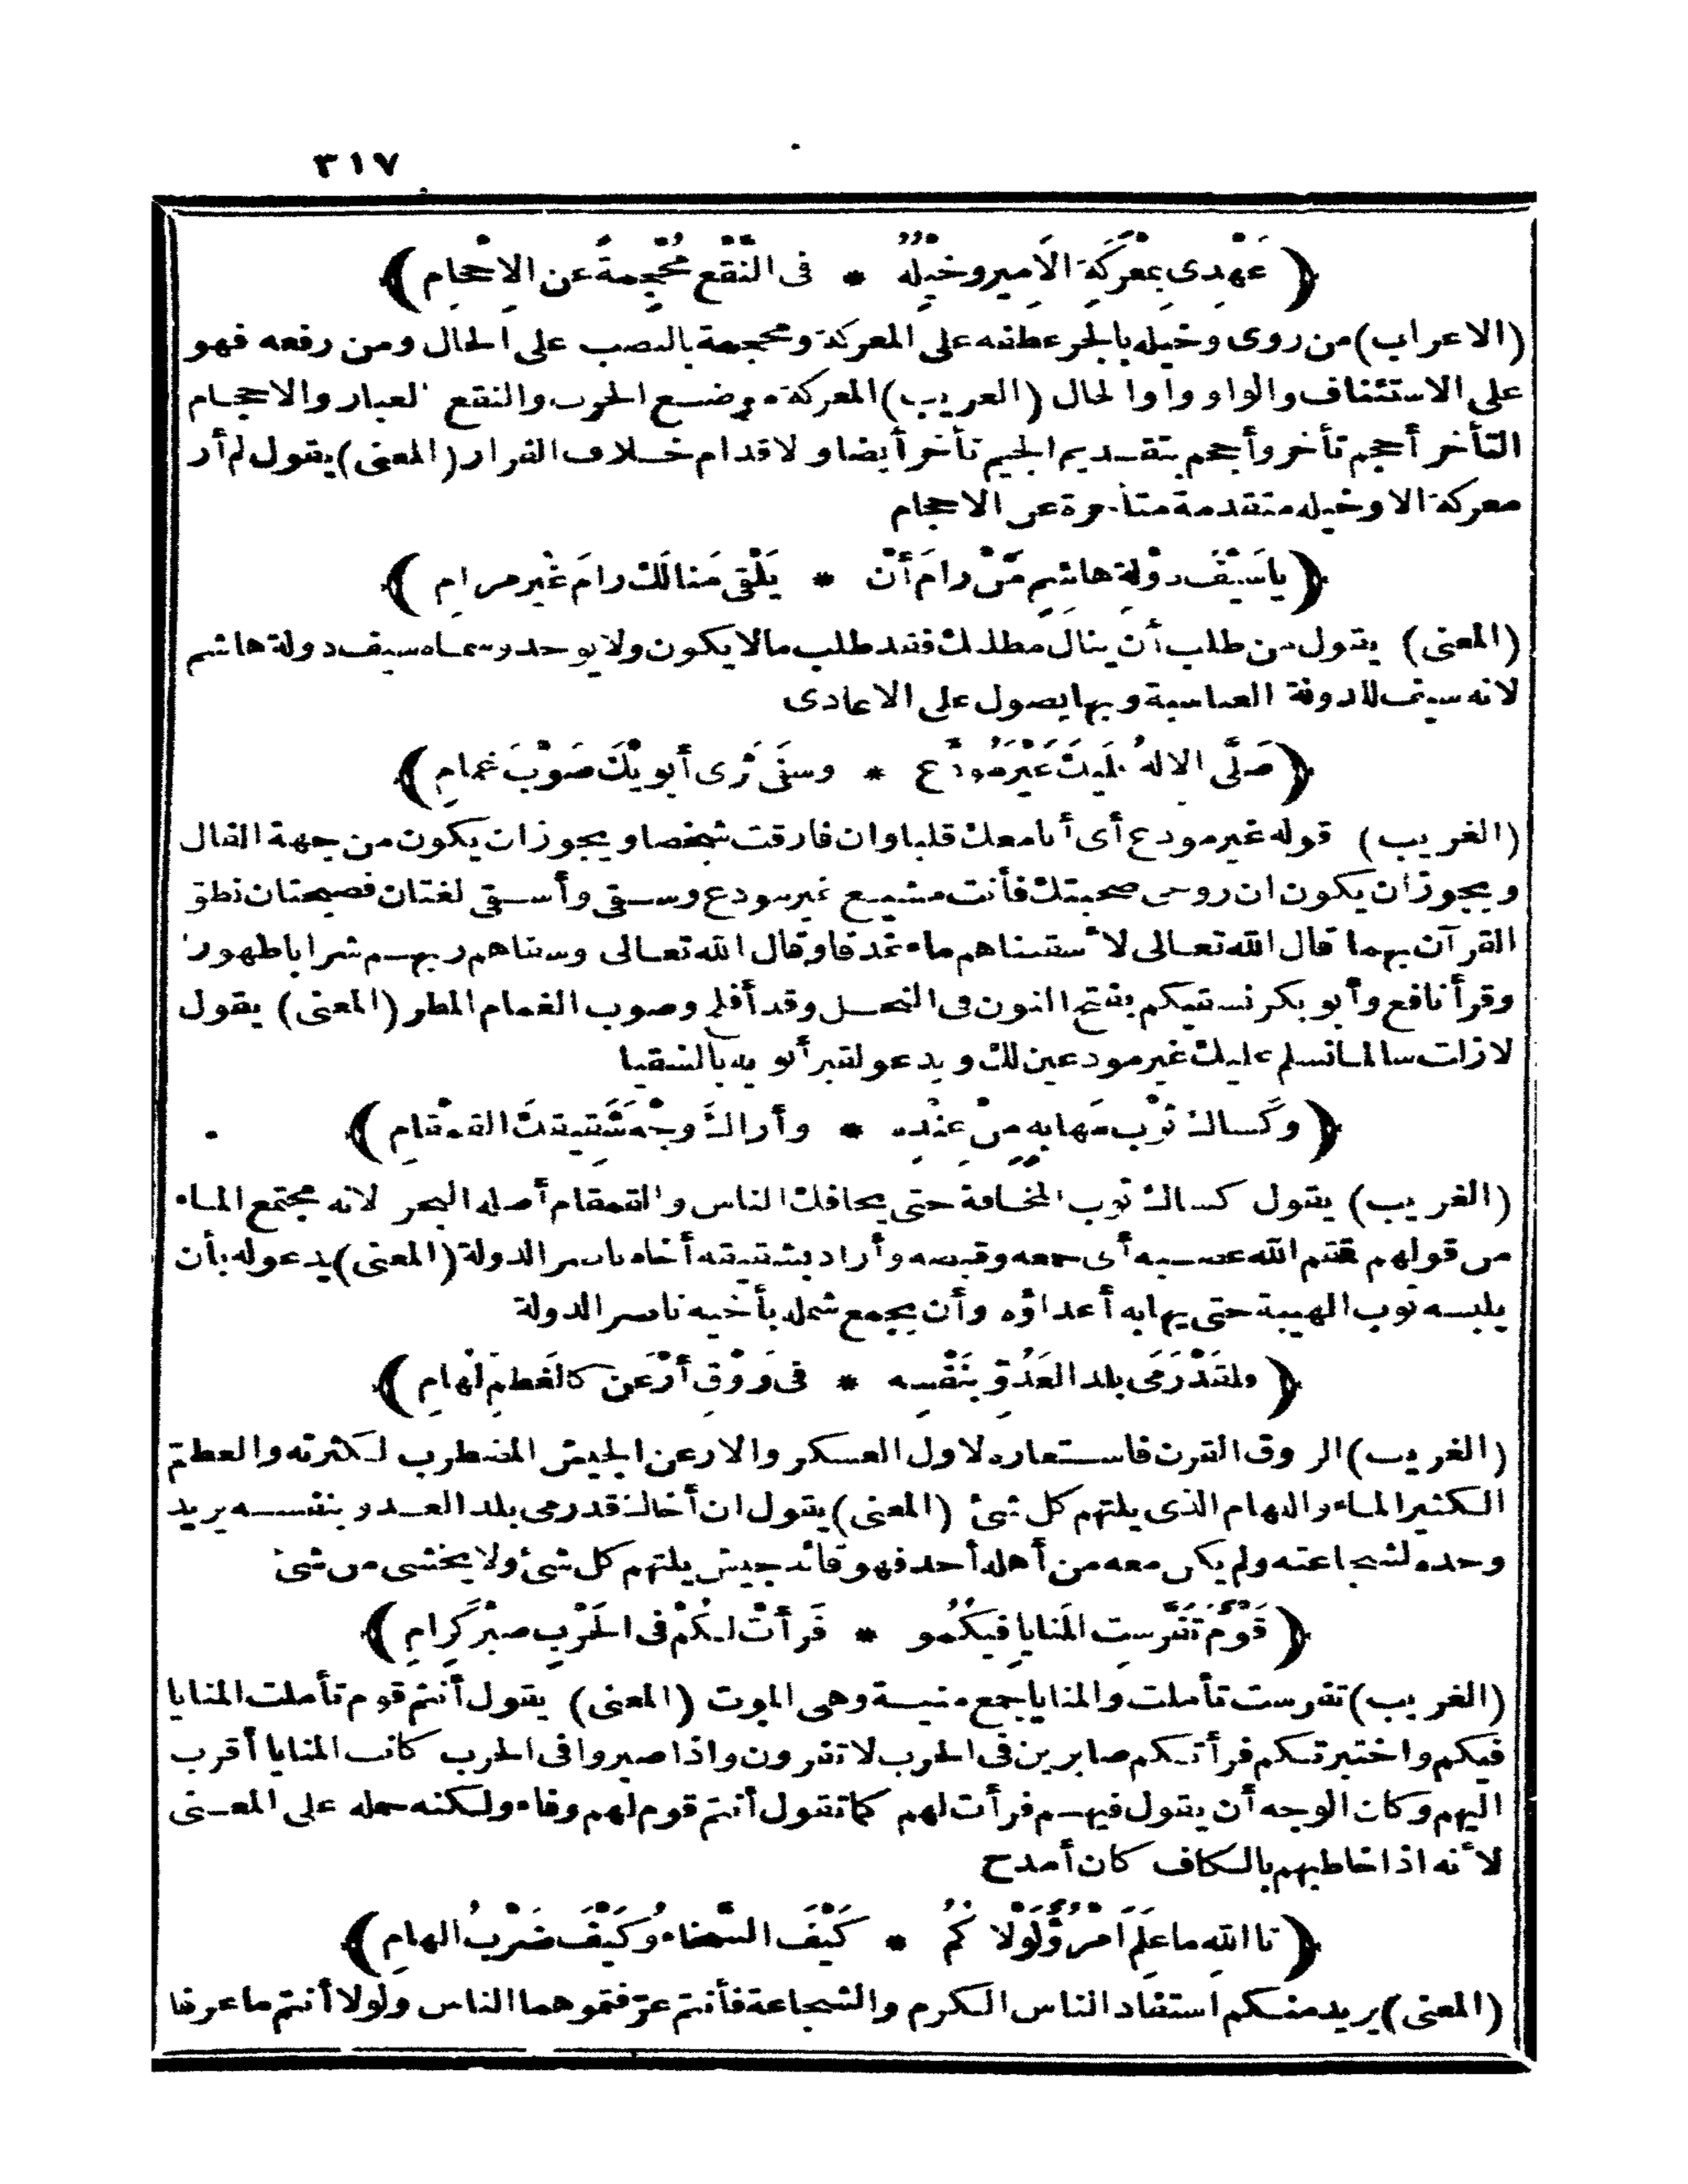 ٣١٧
﴿عَهْدِى بِمَعْرَكَةِ الاَمِيرِ وخَيْلُهُ * فى النَّقْعِ مُحْجِمَةً عَنِ الاِحْجَامِ﴾
(الاعراب) من روى وخيله بالجر عطفه على المعركة ومحجمة بالنصب على الحال ومن رفعه فهو
على الاستئناف والواو واوا لحال (الغريب) المعركة موضع الحرب والنقع الغبار والاحجام
التأخر أحجم تأخر وأجحم بتقديم الجيم تأخر أيضا والاقدام خلاف الفرار (المعنى) يقول لم أر
معركة الا وخيله متقدمة متأخرة عن الاحجام
﴿ياسَيْفَ دَوْلَةِ هاشِمٍ مَنْ رامَ أنْ * يَلْقَى مَنالَكَ رامَ غَيْرَ مرامِ﴾
(المعنى) يقول من طلب أن ينال مطلبك فقد طلب مالا يكون ولا يوجد وسماه سيف دولة هاشم
لانه سيف للدولة العباسية وبها يصول على الاعادى
﴿صَلَّى الالهُ عَلَيْكَ غَيْرَ مُوَدَّعٍ * وسقَى ثَرَى أبوَيْكَ صَوْبُ غَمامِ﴾
(الغريب) قوله غير مودع أى أنا معك قلبا وان فارقت شخصا ويجوز ان يكون من جهة الفال
ويجوز ان يكون ان روحى صحبتك فأنت مشيع غير مودع وسقى وأسقى لغتان فصيحتان نطق
القرآن بهما قال الله تعالى لأسقيناهم ماء غدقا وقال الله تعالى وسقاهم ربهم شرابا طهورا
وقرأ نافع وأبو بكر نسقيكم بفتح النون فى النحل وقد أفلح وصوب الغمام المطر (المعنى) يقول
لازلت سالما نسلم عليك غير مودعين لك ويدعو لقبر أبويه بالسقيا
﴿وكَساكَ ثَوْبَ مَهابةٍ مِنْ عِنْدِه * وأراكَ وَجْهَ شَقِيقِكَ القَمْقامِ﴾
(الغريب) يقول كساك ثوب المخافة حتى يخافك الناس والقمقام أصله البحر لانه مجتمع الماء
من قولهم قمقم الله عصبه أى جمعه وقبضه وأراد بشقيقه أخاه ناصر الدولة (المعنى) يدعوله بأن
يلبسه ثوب الهيبة حتى يهابه أعداؤه وأن يجمع شمله بأخيه ناصر الدولة
﴿ولقَدْ رَمَى بلد العَدُوِّ بنَفْسِه * فى رَوْقِ أرْعَنَ كالغَطَمِّ لُهامِ﴾
(الغريب) الروق القرن فاستعاره لاول العسكر والارعن الجيش المضطرب لكثرته والغطم
الكثير الماء واللهام الذى يلتهم كل شئ (المعنى) يقول ان أخاك قد رمى بلد العدو بنفسه يريد
وحده لشجاعته ولم يكن معه من أهله أحد فهو قائد جيش يلتهم كل شئ ولا يخشى من شئ
﴿قَوْمٌ تَفَرَّستِ المَنايا فيكُمو * فَرأتْ لكُمْ فى الحَرْبِ صَبْرَ كِرامِ﴾
(الغريب) تفرست تأملت والمنايا جمع منية وهى الموت (المعنى) يقول أنتم قوم تأملت المنايا
فيكم واختبرتكم فرأتكم صابرين فى الحرب لا تفرون واذا صبروا فى الحرب كانت المنايا أقرب
اليهم وكان الوجه أن يقول فيهم فرأت لهم كما تقول أنتم قوم لهم وفاء ولكنه حمله على المعنى
لأنه اذا خاطبهم بالكاف كان أمدح
﴿تا اللهِ ما عَلِمَ امْرُؤٌ لَوْلا كُمُ * كَيْفَ السَّخاءُ وكَيْفَ ضَرْبُ الهامِ﴾
(المعنى) يريد منكم استفاد الناس الكرم والشجاعة فأنتم عرّفتموهما الناس ولولا أنتم ما عرفا